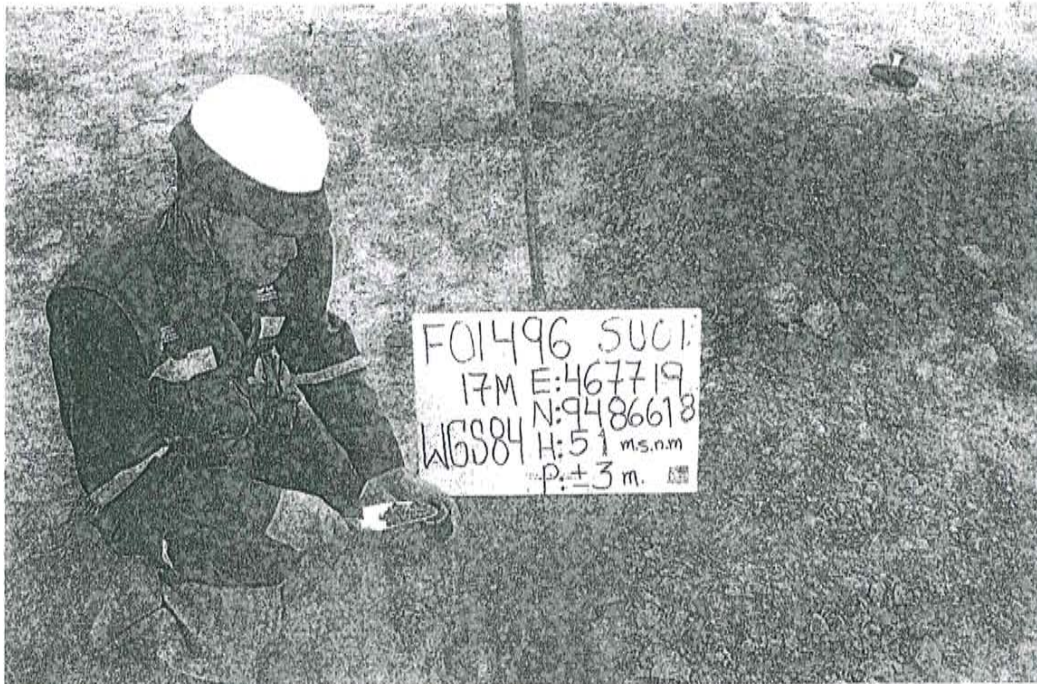 F01496 SU01
17M E:467719
N:9486618
WGS84 H:51 m.s.n.m
P:±3 m.